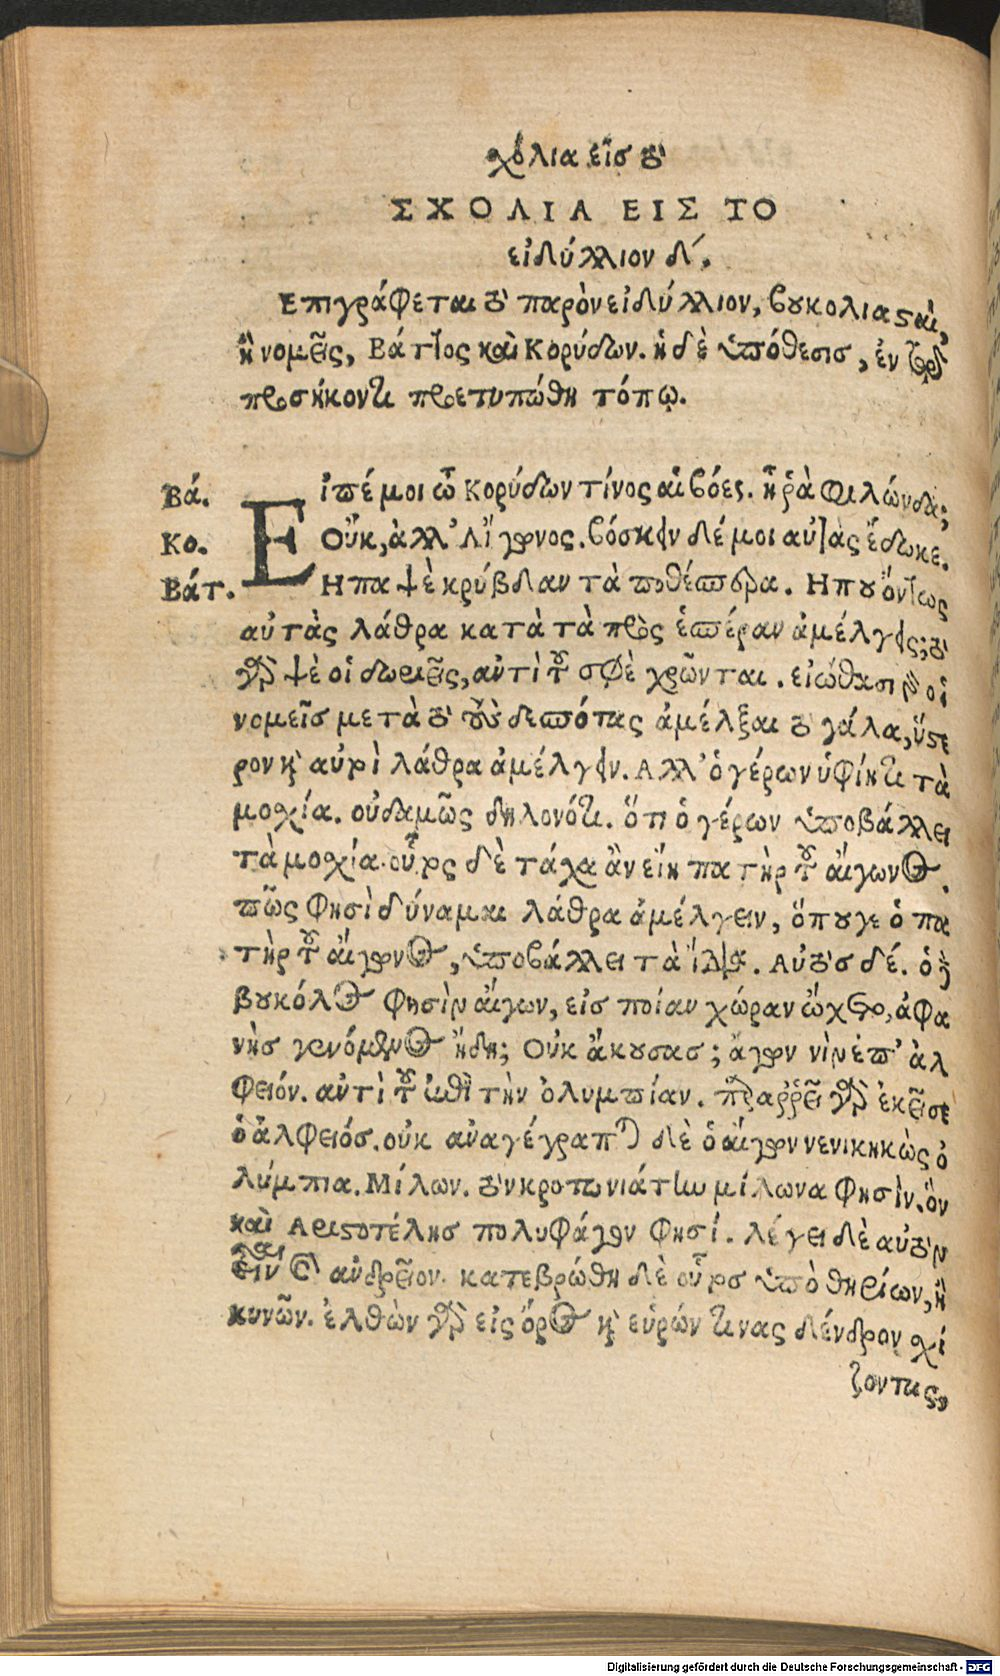 σχόλια εἰσ τὸ
ΣΧΟΛΙΑ ΕΙΣ ΤΟ
εἰδύλλιον δ´.
Επιγράφεται τὸ παρὸν εἰδύλλιον, βουκολιασταὶ,
ἢ νομεῖς, Βάττος καὶ Κορύδων. ἡ δὲ ὑπόθεσισ, ἐν τῷ
προσήκοντι προετυπώθη τόπῳ.
Βά. Εἰπέ μοι ὦ Κορύδων τίνος αἱ βόες. ἦ ῥὰ Φιλώνδα;
Κο. Οὔκ, ἀλλ' Αἴγωνος. βόσκειν δέ μοι αὐτὰς ἔδωκε.
Βάτ. Η πα ψὲ κρύβδαν τὰ ποθέσπερα. Η που ὄντως
αὐτὰς λάθρα κατὰ τὰ πρὸς ἑσπέραν ἀμέλγεις; τὸ
γὰρ ψὲ οἱ δωριεῖς, αὐτὶ τοῦ σφὲ χρῶνται. εἰώθασι γὰρ οἱ
νομεῖσ μετὰ τὸ τοὺς δεσπότας ἀμέλξαι τὸ γάλα, ὕστε
ρον καὶ αὐτοὶ λάθρα ἀμέλγειν. Αλλ' ὁ γέρων ὑφίητι τὰ
μοσχία. οὐδαμῶς δηλονότι. ὅτι ὁ γέρων ὑποβάλλει
τὰ μοσχία. οὗτος δὲ τάχα ἂν εἴη πατὴρ τοῦ αἴγωνος.
πῶς φησὶ δύναμαι λάθρα ἀμέλγειν, ὅπου γε ὁ πα
τὴρ τοῦ αἴγωνος, ὑποβάλλει τὰ ἴδια. Αὐτὸσ δέ. ὁ δὲ
βουκόλος φησὶν αἴγων, εἰσ ποίαν χώραν ᾤχετο, ἀφα
νὴσ γενόμενος ἤδη; Οὐκ ἄκουσασ; ἄγων νὶν ἐπ' ἀλ
φειόν. αὐτὶ τοῦ ἐπὶ τὴν ὀλυμπίαν. παραῤῥεῖ γὰρ ἐκεῖσε
ὁ ἀλφειόσ. οὐκ αναγέγραπται δὲ ὁ αἴγων νενικηκὼς ὀ
λύμπια. Μίλων. τὸν κροτωνιάτην μίλωνα φησὶν. ὃν
καὶ Αριστοτέλησ πολυφάγον φησί. λέγει δὲ αὐτὸν
εἶναι καὶ αὐδρεῖον. κατεβρώθη δὲ οὗτοσ ὑπὸ θηρίων, ἢ
κυνῶν. ἐλθὼν γὰρ εἰς ὄρος καὶ εὑρών τινας δένδρον σχί
ζοντας,
Digitalisierung gefördert durch die Deutsche Forschungsgemeinschaft - DFG